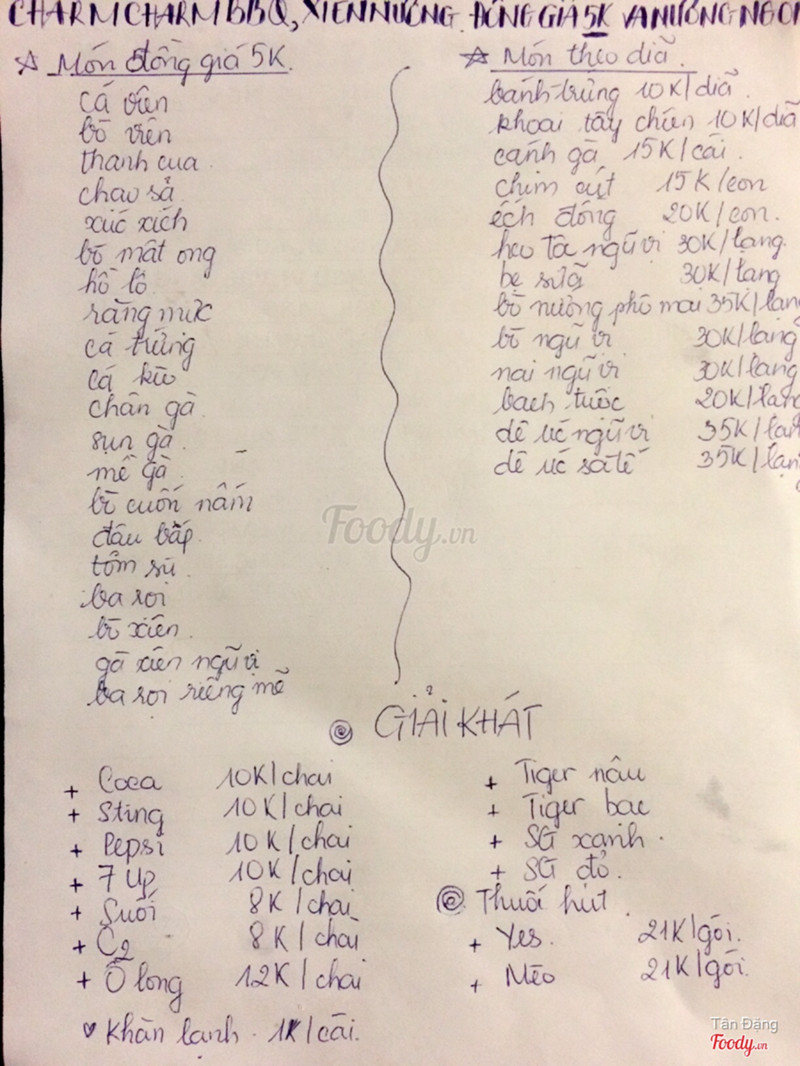 CHARM CHARM BBQ, XIÊN NƯỚNG ĐỒNG GIÁ 5K VÀ NƯỚNG NGON
☆ Món đồng giá 5K.
cá viên
bò viên
thanh cua
chạo sả
xúc xích
bò mật ong
hồ lô
răng mực
cá trứng
cá kèo
chân gà
sụn gà
mề gà
bò cuốn nấm
đậu bắp
tôm sú
ba rọi
bò xiên
gà xiên ngũ vị
ba rọi riềng mẻ
☆ Món theo dĩa.
bánh tráng 10K/dĩa
khoai tây chiên 10K/dĩa
cánh gà 15K/cái.
chim cút 15K/con
ếch đồng 20K/con.
heo tộc ngũ vị 30K/lạng.
bẹ sữa 30K/lạng
bò nướng phô mai 35K/lạng
bò ngũ vị 30K/lạng
nai ngũ vị 30K/lạng
bạch tuộc 20K/lạng
dê úc ngũ vị 35K/lạng
dê úc sa tế 35K/lạng
GIẢI KHÁT
+ Coca 10K/chai
+ Sting 10K/chai
+ Pepsi 10K/chai
+ 7 Up 10K/chai
+ Suối 8K/chai
+ C2 8K/chai
+ Ô long 12K/chai
♥ Khăn lạnh. 1K/cái.
+ Tiger nâu
+ Tiger bạc
+ SG xanh.
+ SG đỏ.
Thuốc hút.
+ Yes. 21K/gói.
+ Mèo 21K/gói.
Foody.vn
Tân Đặng
Foody.vn